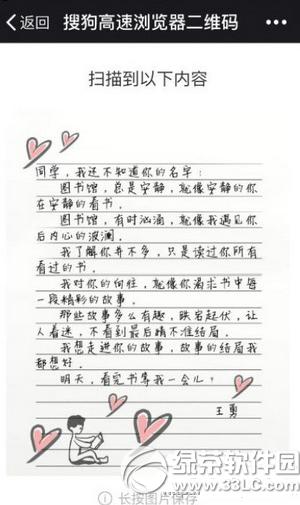 返回 搜狗高速浏览器二维码
扫描到以下内容
同学，我还不知道你的名字：
图书馆，总是安静，就像安静的你
在安静的看书。
图书馆，有时汹涌，就像我遇见你
后内心的波澜。
我了解你并不多，只是读过你所有
看过的书。
我对你的向往，就像你渴求书中每
一段精彩的故事。
那些故事多么有趣，跌宕起伏，让
人着迷，不看到最后猜不准结局。
我想走进你的故事，故事的结局我
都想好。
明天，看完书等我一会儿？
王勇
长按图片保存
绿茶软件园
www.33LC.com